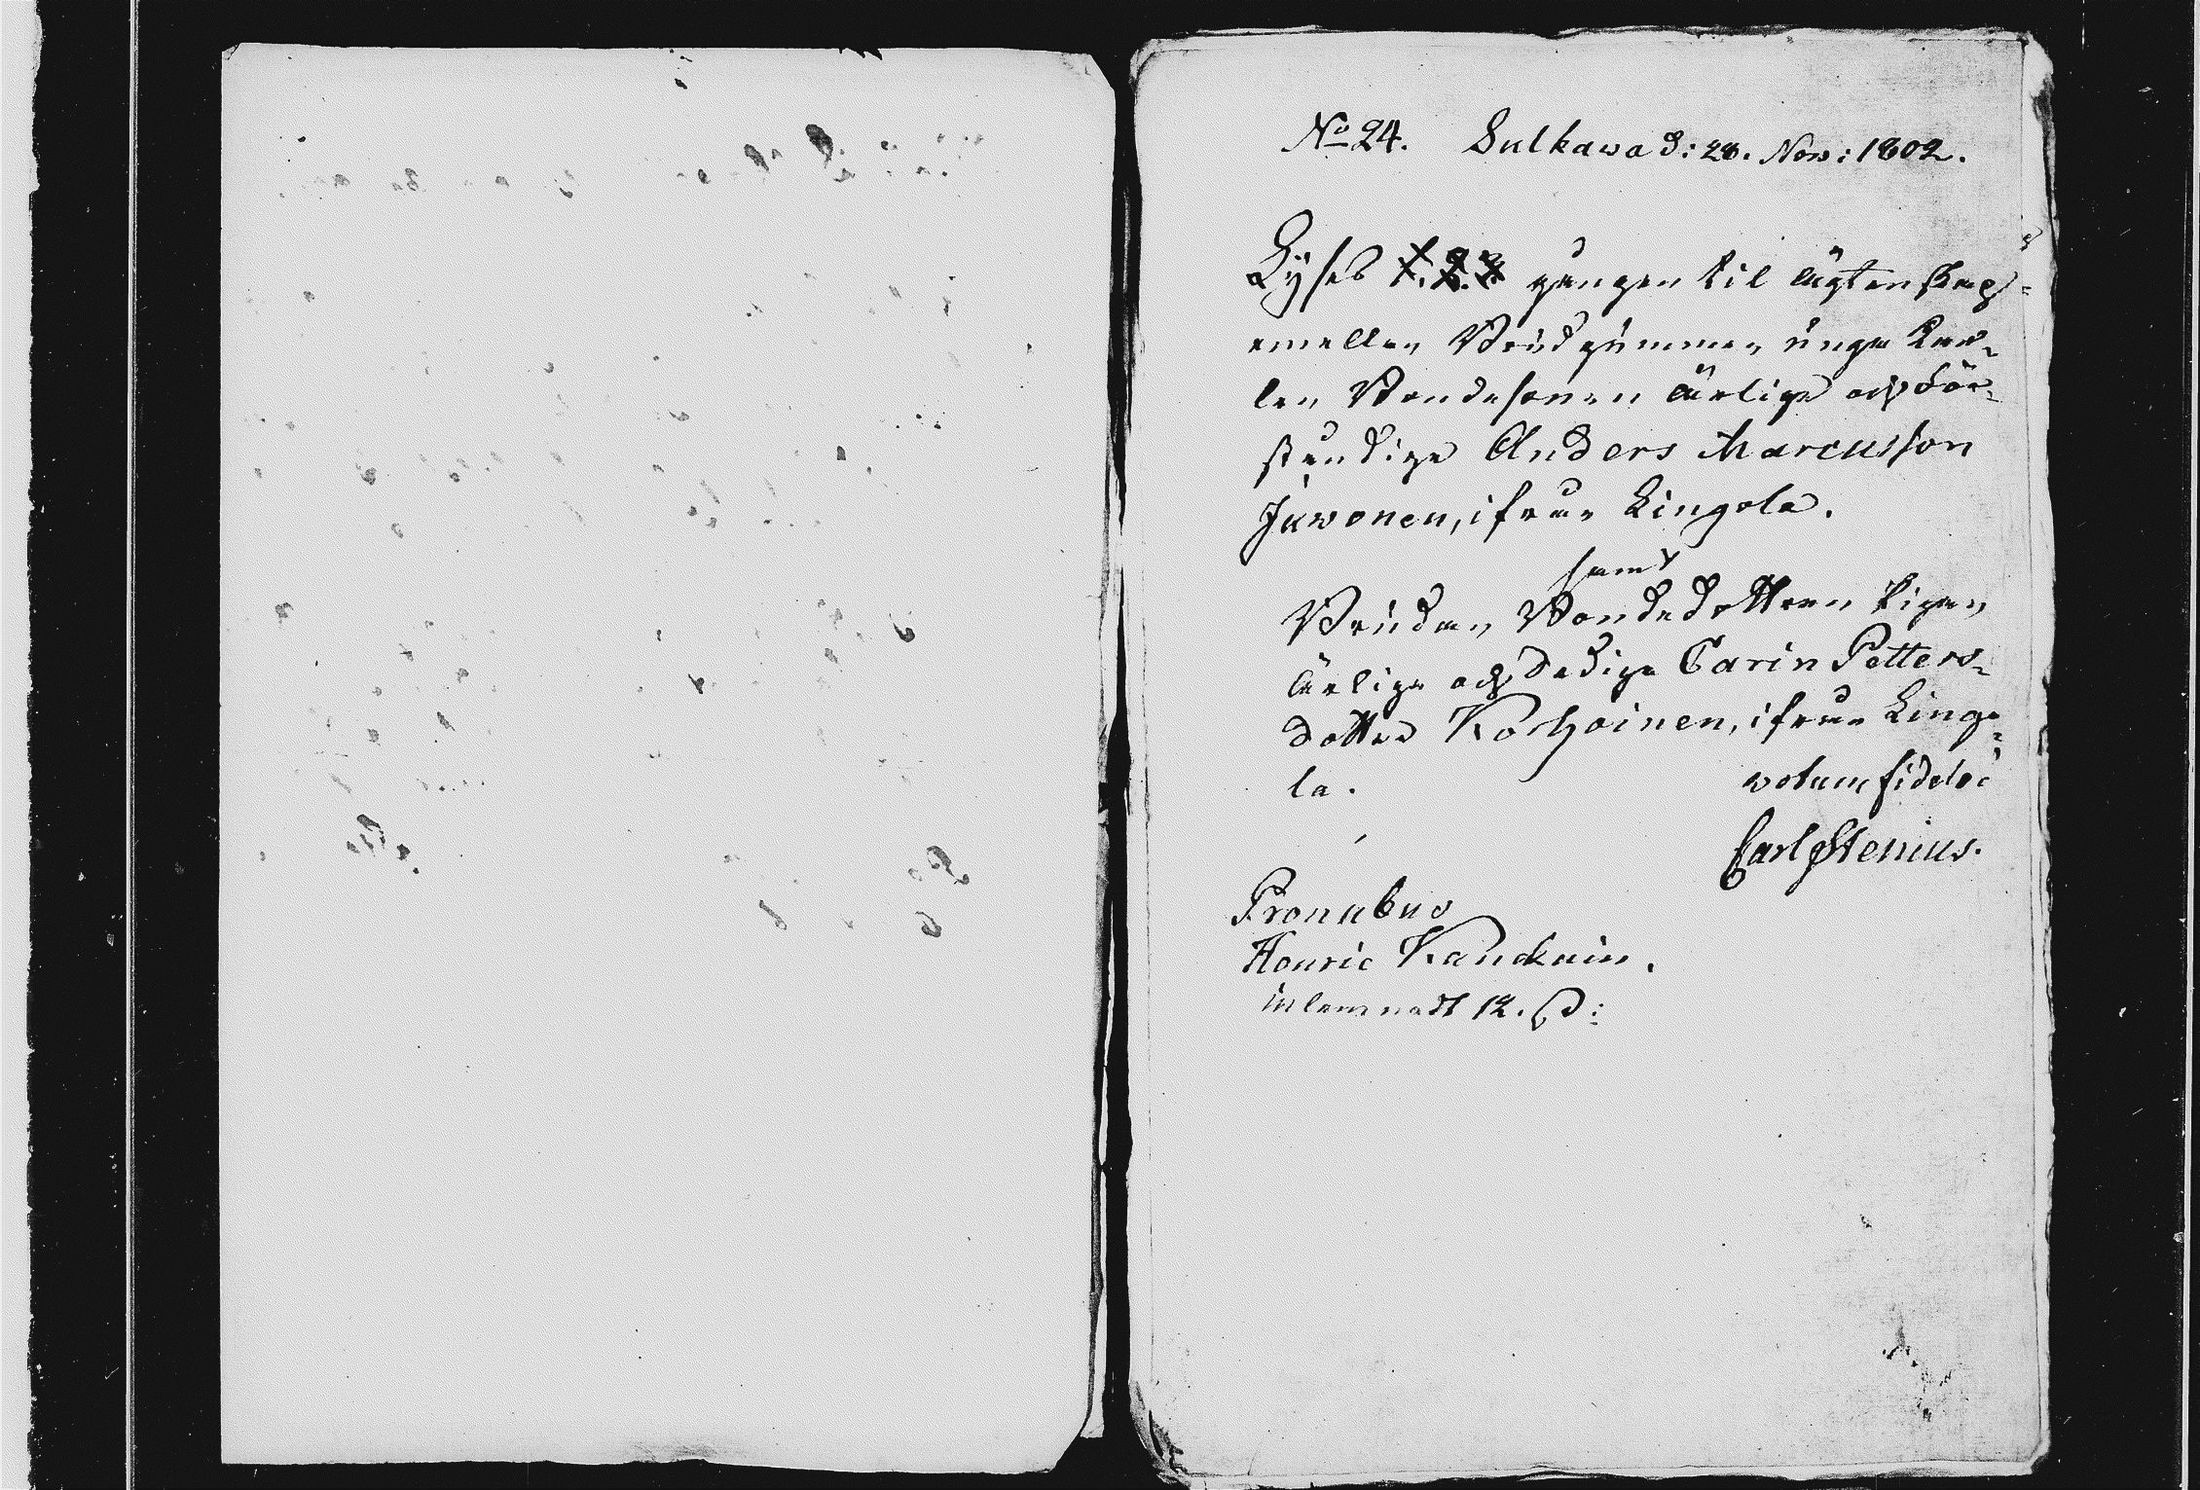 No 24. Sulkava d: 28. Nov: 1802.
Lyses 1. 2. 3 gången til ägtenskap
emellan Brudgummen unge Kar-
len Bondesonen ärlige och för-
ståndige Anders Marcusson
Juvonen, ifrån Lingola.
samt
Bruden Bondedottern Pigan
ärlige och dedige Carin Petters-
dotter Korhoinen, ifrån Lingo-
la. votum fidelei
Carl Stenius.
Pronubus
Henric Kanckuin.
inlemnadt 12. s: